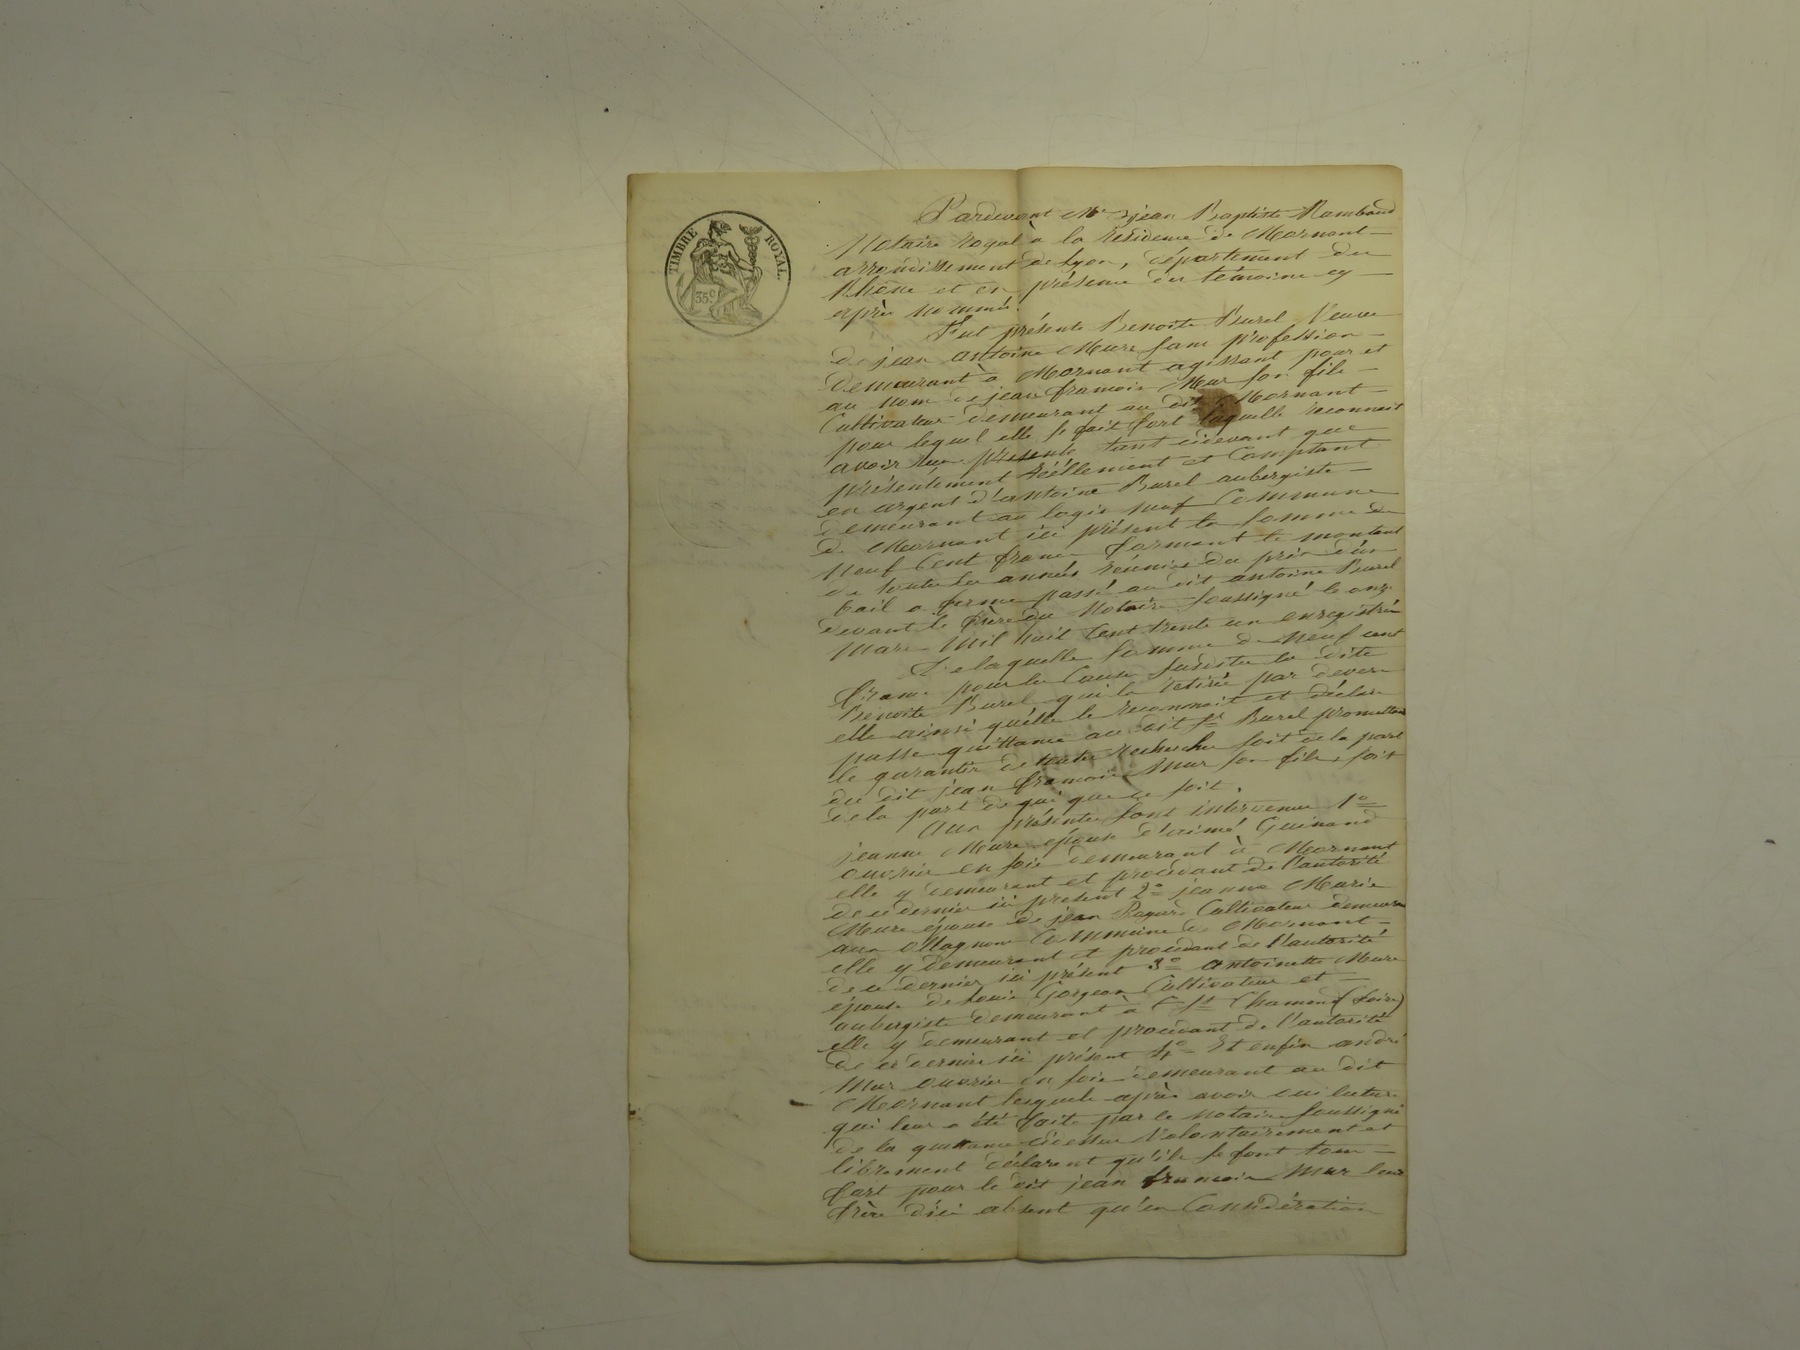 TIMBRE ROYAL.
35c
Pardevant Me jean Baptiste Rambaud
Notaire royal à la residence de Mornant
arrondissement de Lyon, département du
Rhône et en présence des témoins cy
après nommés.
Fut présente Benoite Burel Veuve
de jean antoine Mure sans profession
demeurant à Mornant agissant pour et
au nom de jean francois Mur son fils
Cultivateur demeurant au dit Mornant
pour lequel elle se fait fort laquelle reconnait
avoir reçu présente tant cidevant que
présentement réellement et Comptant
en argent d'antoine Burel aubergiste
demeurant au logis neuf Commune
de Mornant ici présent la somme de
Neuf Cent francs formant le montant
de toutes les années réunies du prix d'un
bail a ferme passé au dit antoine Burel
devant le frère du Notaire soussigné le onze
Mars Mil huit Cent trente un enregistré
De laquelle somme de Neuf cent
francs pour les Causes susdites la dite
Benoite Burel qui la retirée par devers
elle ainsi qu'elle le reconnait et déclare
passe quittance au dit Sr Burel promettant
le garantir de toutes recherches soit de la part
du dit jean francois Mur son fils, soit
de la part de qui que ce soit.
Aux présentes sont intervenus 1o
jeanne Mure épouse d'aimé Guinand
ouvrier en soie demeurant à Mornant
elle y demeurant et procédant de l'autorité
de ce dernier ici présent 2o jeanne Marie
Mure épouse de jean Cultivateur demeurant
aux Commune de Mornant
elle y demeurant et procédant de l'autorité
de ce dernier ici présent 3o antoinette Mure
épouse de Louis Gorgeon Cultivateur et
aubergiste demeurant à St Chamond (Loire)
elle y demeurant et procédant de l'autorité
de ce dernier ici présent 4o Et enfin andré
Mur ouvrier en soie demeurant au dit
Mornant lesquels après avoir oui lecture
qui leur a été faite par le notaire soussigné
de la quittance cidessus Volontairement et
librement déclarent qu'ils se font tous
fort pour le dit jean francois Mur leur
frère d'ici absent qu'en Considération